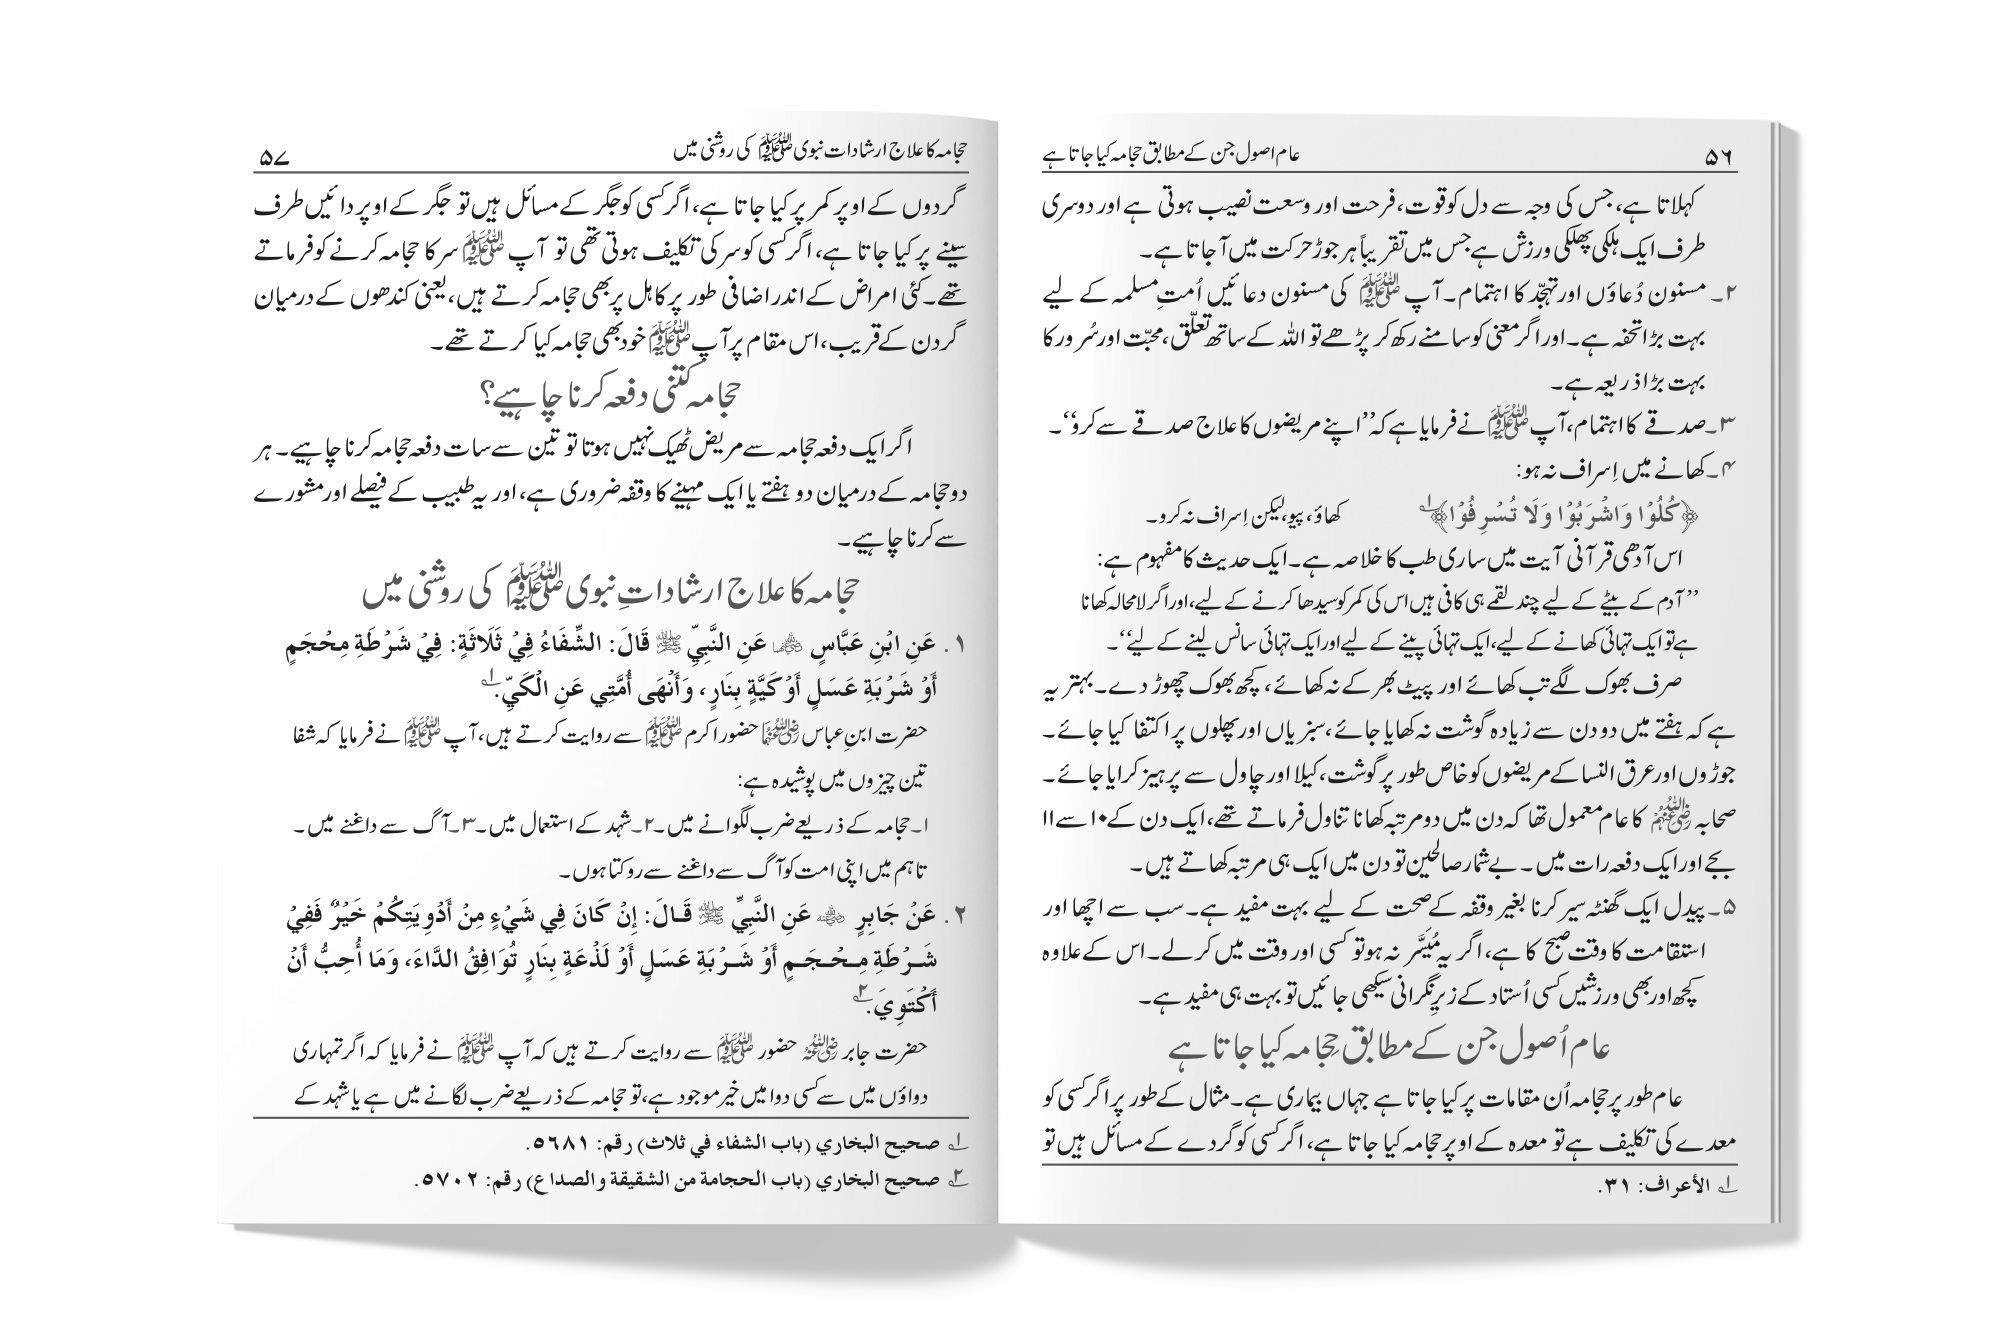 ۵۶
عام اصول جن کے مطابق حجامہ کیا جاتا ہے
کہلاتا ہے، جس کی وجہ سے دل کو قوت، فرحت اور وسعت نصیب ہوتی ہے اور دوسری
طرف ایک ہلکی پھلکی ورزش ہے جس میں تقریباً ہر جوڑ حرکت میں آ جاتا ہے۔
۲۔ مسنون دُعاؤں اور تہجّد کا اہتمام۔ آپ ﷺ کی مسنون دعائیں اُمتِ مسلمہ کے لیے
بہت بڑا تحفہ ہے۔ اور اگر معنی کو سامنے رکھ کر پڑھے تو اللہ کے ساتھ تعلّق، محبّت اور سُرور کا
بہت بڑا ذریعہ ہے۔
۳۔ صدقے کا اہتمام، آپ ﷺ نے فرمایا ہے کہ ”اپنے مریضوں کا علاج صدقے سے کرو“۔
۴۔ کھانے میں اِسراف نہ ہو:
﴿كُلُوْا وَاشْرَبُوْا وَلَا تُسْرِفُوْا﴾ ۱؎ کھاؤ، پیو، لیکن اِسراف نہ کرو۔
اس آدھی قرآنی آیت میں ساری طب کا خلاصہ ہے۔ ایک حدیث کا مفہوم ہے:
”آدم کے بیٹے کے لیے چند لقمے ہی کافی ہیں اس کی کمر کو سیدھا کرنے کے لیے، اور اگر لامحالہ کھانا
ہے تو ایک تہائی کھانے کے لیے، ایک تہائی پینے کے لیے اور ایک تہائی سانس لینے کے لیے“۔
صرف بھوک لگے تب کھائے اور پیٹ بھر کے نہ کھائے، کچھ بھوک چھوڑ دے۔ بہتر یہ
ہے کہ ہفتے میں دو دن سے زیادہ گوشت نہ کھایا جائے، سبزیاں اور پھلوں پر اکتفا کیا جائے۔
جوڑوں اور عرق النسا کے مریضوں کو خاص طور پر گوشت، کیلا اور چاول سے پرہیز کرایا جائے۔
صحابہ رضی اللہ عنہم کا عام معمول تھا کہ دن میں دو مرتبہ کھانا تناول فرماتے تھے، ایک دن کے ۱۰ سے ۱۱
بجے اور ایک دفعہ رات میں۔ بے شمار صالحین تو دن میں ایک ہی مرتبہ کھاتے ہیں۔
۵۔ پیدل ایک گھنٹہ سیر کرنا بغیر وقفہ کے صحت کے لیے بہت مفید ہے۔ سب سے اچھا اور
استقامت کا وقت صبح کا ہے، اگر یہ مُیَسَّر نہ ہو تو کسی اور وقت میں کر لے۔ اس کے علاوہ
کچھ اور بھی ورزشیں کسی اُستاد کے زیرِ نگرانی سیکھی جائیں تو بہت ہی مفید ہے۔
عام اُصول جن کے مطابق حِجامہ کیا جاتا ہے
عام طور پر حجامہ اُن مقامات پر کیا جاتا ہے جہاں بیماری ہے۔ مثال کے طور پر اگر کسی کو
معدے کی تکلیف ہے تو معدہ کے اوپر حجامہ کیا جاتا ہے، اگر کسی کو گردے کے مسائل ہیں تو
۱؎ الأعراف: ٣١.
حجامہ کا علاج ارشادات نبوی ﷺ کی روشنی میں
۵۷
گردوں کے اوپر کمر پر کیا جاتا ہے، اگر کسی کو جگر کے مسائل ہیں تو جگر کے اوپر دائیں طرف
سینے پر کیا جاتا ہے، اگر کسی کو سر کی تکلیف ہوتی تھی تو آپ ﷺ سر کا حجامہ کرنے کو فرماتے
تھے۔ کئی امراض کے اندر اضافی طور پر کاہل پر بھی حجامہ کرتے ہیں، یعنی کندھوں کے درمیان
گردن کے قریب، اس مقام پر آپ ﷺ خود بھی حجامہ کیا کرتے تھے۔
حجامہ کتنی دفعہ کرنا چاہیے؟
اگر ایک دفعہ حجامہ سے مریض ٹھیک نہیں ہوتا تو تین سے سات دفعہ حجامہ کرنا چاہیے۔ ہر
دو حجامہ کے درمیان دو ہفتے یا ایک مہینے کا وقفہ ضروری ہے، اور یہ طبیب کے فیصلے اور مشورے
سے کرنا چاہیے۔
حجامہ کا علاج ارشاداتِ نبوی ﷺ کی روشنی میں
١. عَنِ ابْنِ عَبَّاسٍ رضی اللہ عنہما عَنِ النَّبِيِّ ﷺ قَالَ: الشِّفَاءُ فِيْ ثَلَاثَةٍ: فِيْ شَرْطَةِ مِحْجَمٍ
أَوْ شَرْبَةِ عَسَلٍ أَوْ كَيَّةٍ بِنَارٍ، وَأَنْهَى أُمَّتِي عَنِ الْكَيِّ. ۱؎
حضرت ابنِ عباس رضی اللہ عنہما حضور اکرم ﷺ سے روایت کرتے ہیں، آپ ﷺ نے فرمایا کہ شفا
تین چیزوں میں پوشیدہ ہے:
۱۔ حجامہ کے ذریعے ضرب لگوانے میں۔ ۲۔ شہد کے استعمال میں۔ ۳۔ آگ سے داغنے میں۔
تاہم میں اپنی امت کو آگ سے داغنے سے روکتا ہوں۔
٢. عَنْ جَابِرٍ رضی اللہ عنہ عَنِ النَّبِيِّ ﷺ قَالَ: إِنْ كَانَ فِي شَيْءٍ مِنْ أَدْوِيَتِكُمْ خَيْرٌ فَفِيْ
شَرْطَةِ مِحْجَمٍ أَوْ شَرْبَةِ عَسَلٍ أَوْ لَذْعَةٍ بِنَارٍ تُوَافِقُ الدَّاءَ، وَمَا أُحِبُّ أَنْ
أَكْتَوِيَ. ۲؎
حضرت جابر رضی اللہ عنہ حضور ﷺ سے روایت کرتے ہیں کہ آپ ﷺ نے فرمایا کہ اگر تمہاری
دواؤں میں سے کسی دوا میں خیر موجود ہے، تو حجامہ کے ذریعے ضرب لگانے میں ہے یا شہد کے
۱؎ صحيح البخاري (باب الشفاء في ثلاث) رقم: ٥٦٨١.
۲؎ صحيح البخاري (باب الحجامة من الشقيقة والصداع) رقم: ٥٧٠٢.